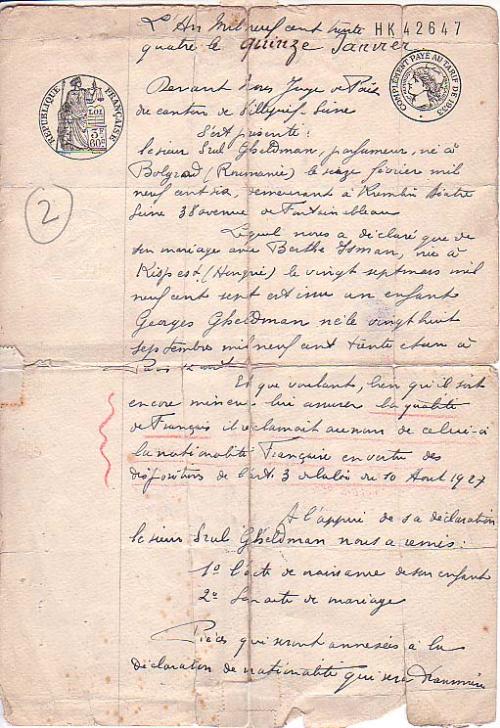 L'An Mil neuf cent trente HK 42647
quatre le quinze Janvier
RÉPUBLIQUE FRANÇAISE
LOI
3F
60c
COMPLÉMENT PAYÉ AU TARIF DE 1933
2
Devant Nous Juge de Paix
du canton de Villejuif - Seine
S'est présenté :
le sieur Szul Gheldman, parfumeur, né à
Bolgrad (Roumanie) le seize février mil
neuf cent six, demeurant à Kremlin Bicêtre
Seine 38 avenue de Fontainebleau
Lequel nous a déclaré que de
son mariage avec Berthe Isman, née à
Kispest (Hongrie) le vingt sept mars mil
neuf cent sept est issu un enfant
Georges Gheldman né le vingt huit
septembre mil neuf cent trente et un à
Paris
Et que voulant, bien qu'il soit
encore mineur lui assurer la qualité
de Français il réclamait au nom de celui-ci
la nationalité Française en vertu des
dispositions de l'art. 3 de la loi du 10 Août 1927
A l'appui de sa déclaration
le sieur Szul Gheldman nous a remis :
1º l'acte de naissance de son enfant
2º Son acte de mariage
Pièces qui seront annexées à la
déclaration de nationalité qui sera transmise